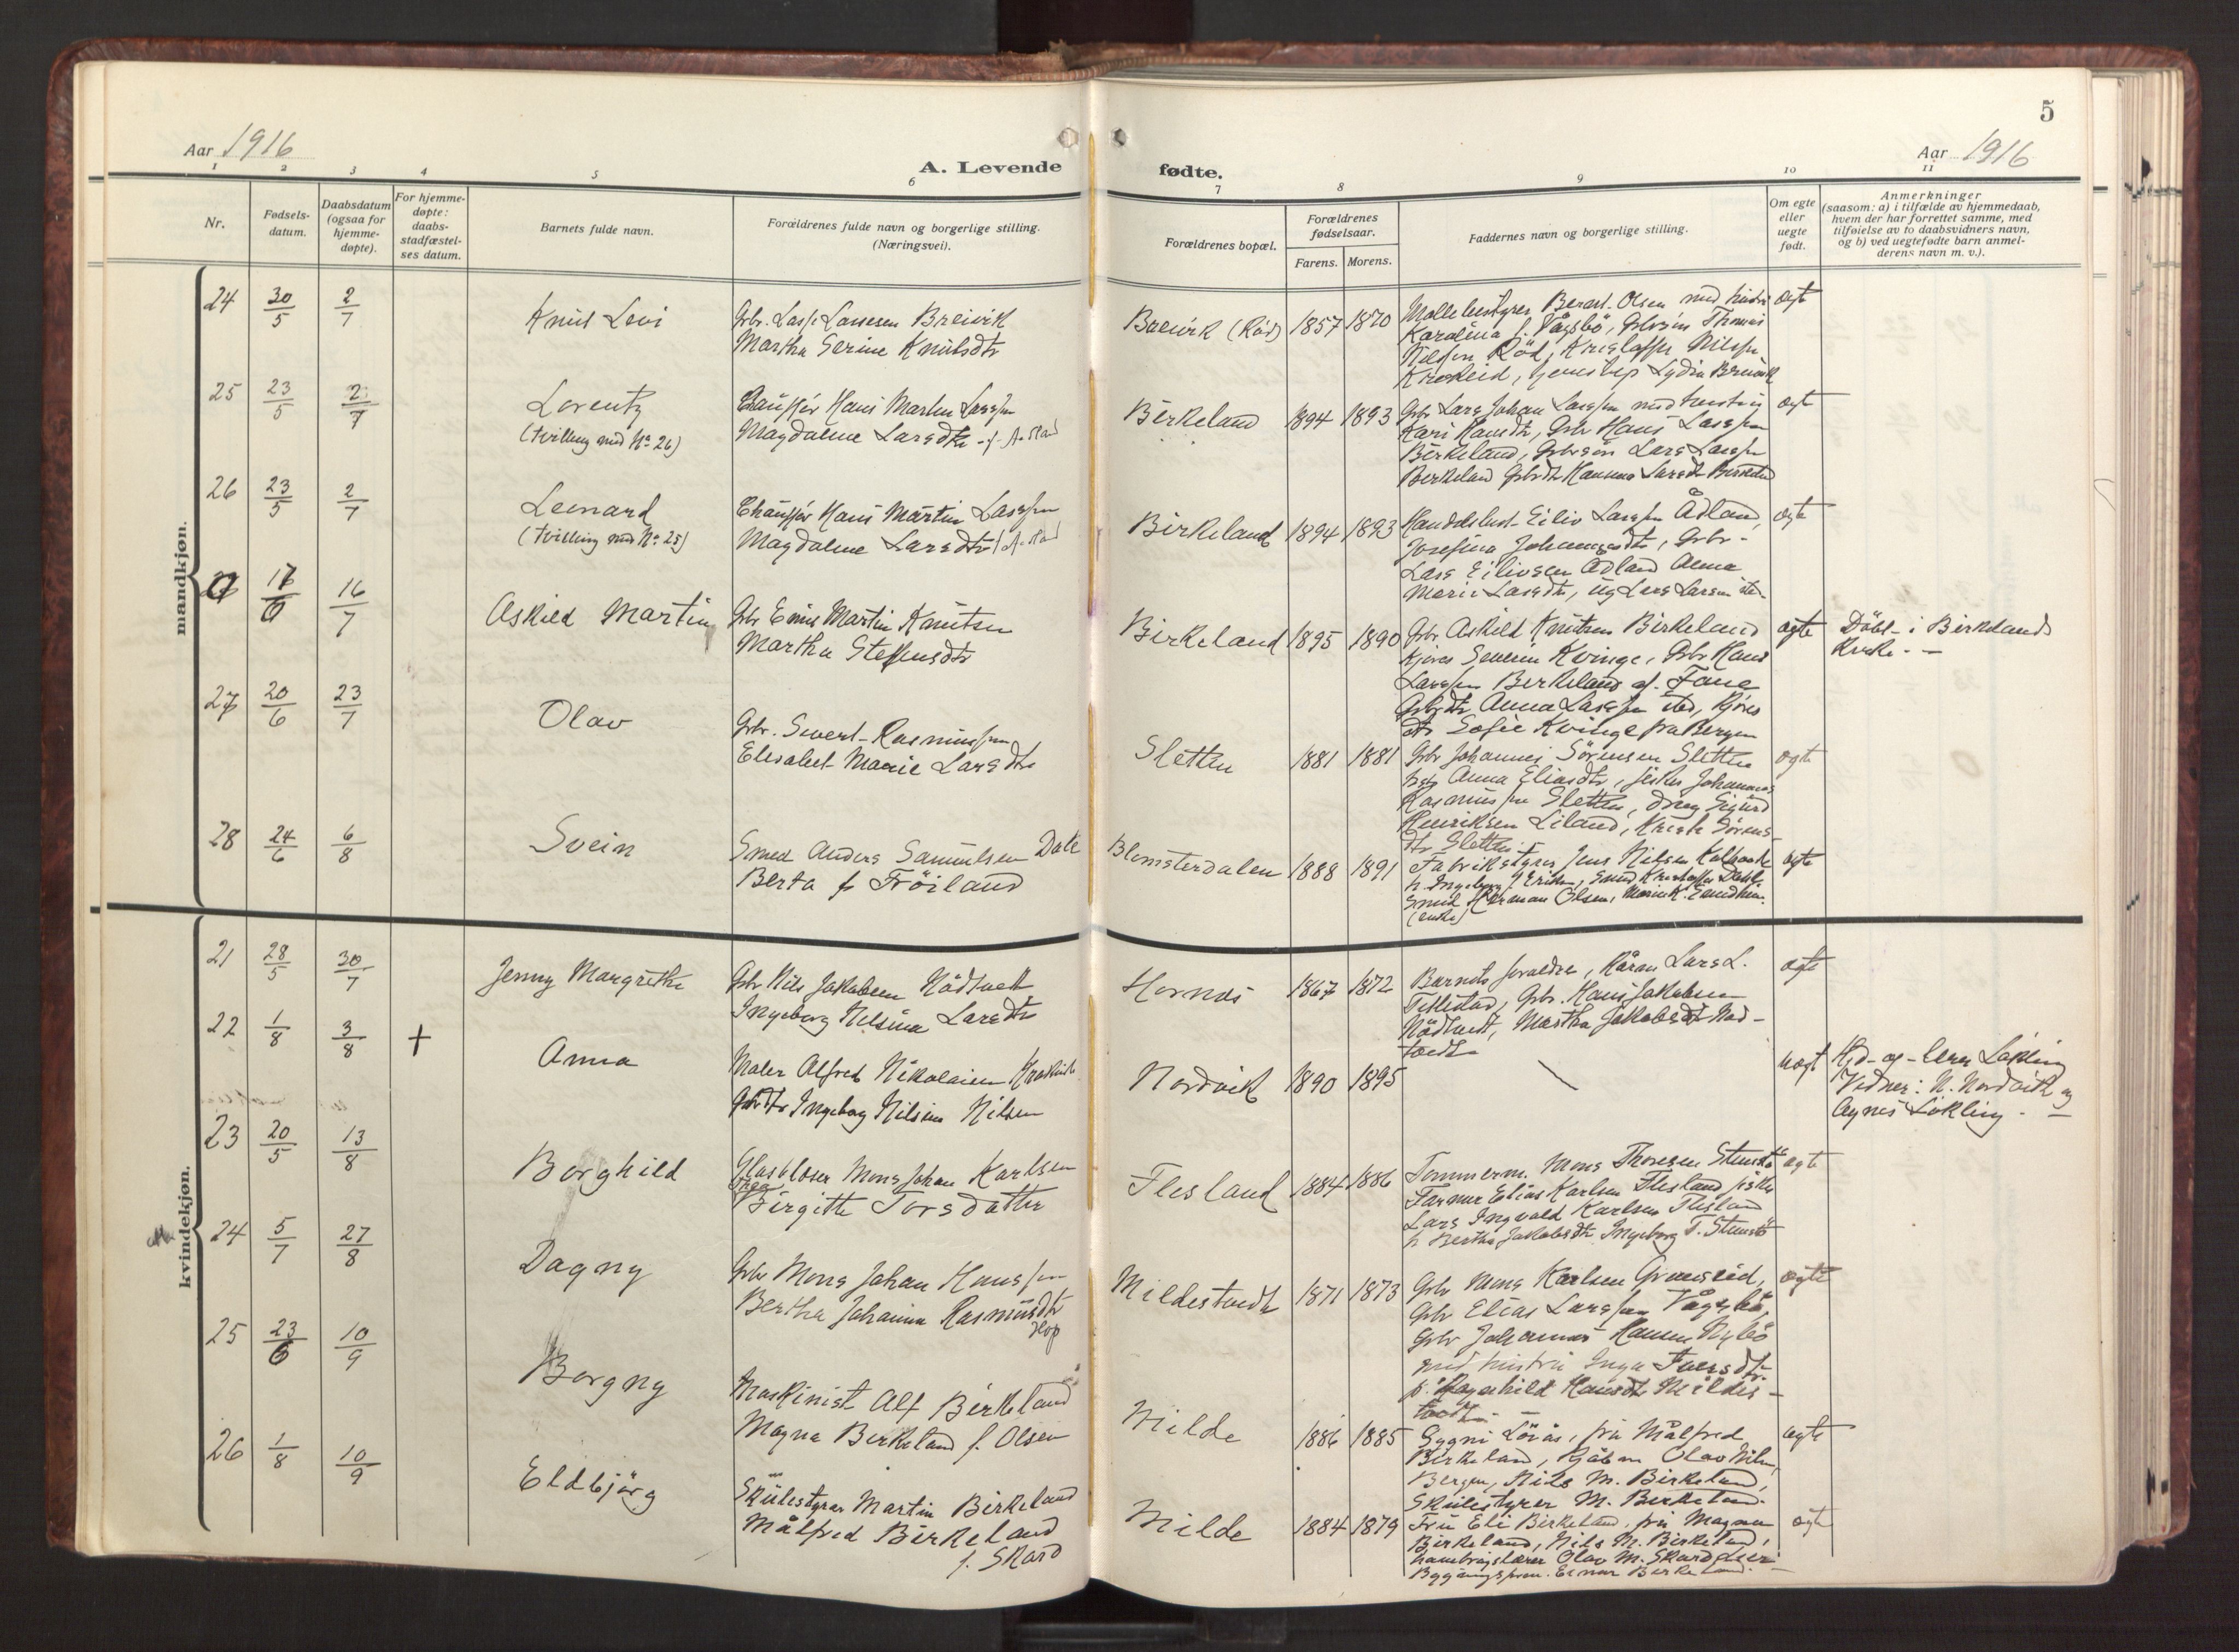 5
Aar 1916
A. Levende fødte.
Aar 1916
1 2 3 4 5 6 7 8 9 10 11
Nr.
Fødsels-
datum.
Daabsdatum
(ogsaa for
hjemme-
døpte).
For hjemme-
døpte:
daabs-
stadfæstel-
ses datum.
Barnets fulde navn.
Forældrenes fulde navn og borgerlige stilling.
(Næringsvei).
Forældrenes bopæl.
Forældrenes
fødselsaar.
Farens. Morens.
Faddernes navn og borgerlige stilling.
Om egte
eller
uegte
født.
Anmerkninger
(saasom: a) i tilfælde av hjemmedaab,
hvem der har forrettet samme, med
tilføielse av to daabsvidners navn,
og b) ved uegtefødte barn anmel-
derens navn m. v.).
mandkjøn.
24 30/5 2/7 Knut Levi
Gbr. Lasse Lassesen Breivik
Martha Serine Knutsdtr
Breivik (Röd) 1857 1870
Karolina f. Vågsbö, Thomas
Nilssen Röd, Nilssen
Krokeid, Lydia Breivik
egte
25 23/5 2/7 Lorentz
(tvilling med No 26)
Chauffør Hans Martin Larssen
Magdalene Larsdtr
Birkeland 1894 1893
Gbr Lars Johan Larssen med hustru
Kari Hansdtr, Gbr Hans Larssen
Birkeland, Gbrsøn Lars Larssen
Birkeland Gbrdtr Hanna Larsdtr Birkeland
egt
26 23/5 2/7 Leonard
(tvilling med No 25)
Chauffør Hans Martin Larssen
Magdalene Larsdtr
Birkeland 1894 1893
Handelsbest. Eiliv Larssen Ådland,
Josefina Johannesdtr, Gbr.
Lars Eilivsen Ådland Anna
Marie Larsdtr, ug Lars Larsen
egte
17/6 16/7 Askild Martin
Gbr Enus Martin Knutsen
Martha Steffensdtr
Birkeland 1895 1890
Gbr Askild Knutsen Birkeland
Severin Kvinge, Gbr Hans
Larssen Birkeland af Fane
Gbrdtr Anna Larssen
dtr Sofie Kvinge fra Bergen
egte
Döbt i Birkelands
Kirke.
27 20/6 23/7 Olav
Gbr. Sivert Rasmussen
Elisabet Marie Larsdtr
Sletten 1881 1881
Gbr Johannes Sörensen Sletten
Anna Eliasdtr, fisker Johannes
Rasmussen Sletten, dreng Sigurd
Henriksen Liland, Sörens-
dtr Sletten
egte
28 24/6 6/8 Svein
Smed Anders Samuelsen Dale
Berta f. Fröiland
Blomsterdalen 1888 1891
Fabrikstyrer Jens Nilsen
h. Ingeborg f. Smed
Smed Herman Olsen,
(enke)
egte
kvindekjøn.
21 28/5 30/7 Jenny Margrethe
Gbr Nils Jakobsen Nödtvedt
Ingeborg Nilsina Larsdtr
Hornäs 1867 1872
Barnets foraldre, Lars L.
Titlestad, Gbr. Hans Jakobsen
Nödtvedt, Martha Jakobsdtr Nöd-
tvedt
egte
22 1/8 3/8 + Anna
Maler Alfred Nikolaisen
Gbrdtr Ingeborg Nilsine Nilsen
Nordvik 1890 1895
uegt
Løkling
Vidner: N. Nordvik og
Agnes Løkling
23 20/5 13/8 Borghild
Glasblåser Mons Johan Karlsen
Birgitte Torsdatter
Flesland 1884 1886
Tømmerm. Mons Thoresen
Farmer Elias Karlsen Flesland fisker
Lars Ingvald Karlsen Flesland
h Bertha Jakobsdtr Ingeborg T.
egte
24 5/7 27/8 Dagny
Gbr Mons Johan Hanssen
Bertha Johanna Rasmusdtr
Hop
Mildestvedt 1871 1873
Gbr Mons Karlsen Grimseid,
Gbr Elias Larssen Vågsbö,
Gbr Johannes Hansen Nybö
med hustru Inga Iversdtr
p. Ragnhild Hansdtr Mildes-
tvedt
egte
25 23/6 10/9 Borgny
Maskinist Alf Birkeland
Magna Birkeland f. Olsen
Milde 1886 1885
Sygni Lövås, fru Målfred
Birkeland, Olav
Bergen, Nils M. Birkeland,
Skulestyrer M. Birkeland.
egte
26 1/8 10/9 Eldbjörg
Skulestyrar Martin Birkeland
Målfred Birkeland
f. Skard
Milde 1884 1879
Fru Eli Birkeland, fru Magna
Birkeland, Nils M. Birkeland,
Olav M. Skard
Einar Birkeland.
egte